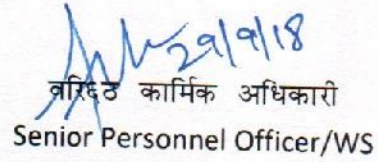 29/9/18
वरिष्ठ कार्मिक अधिकारी
Senior Personnel Officer/WS